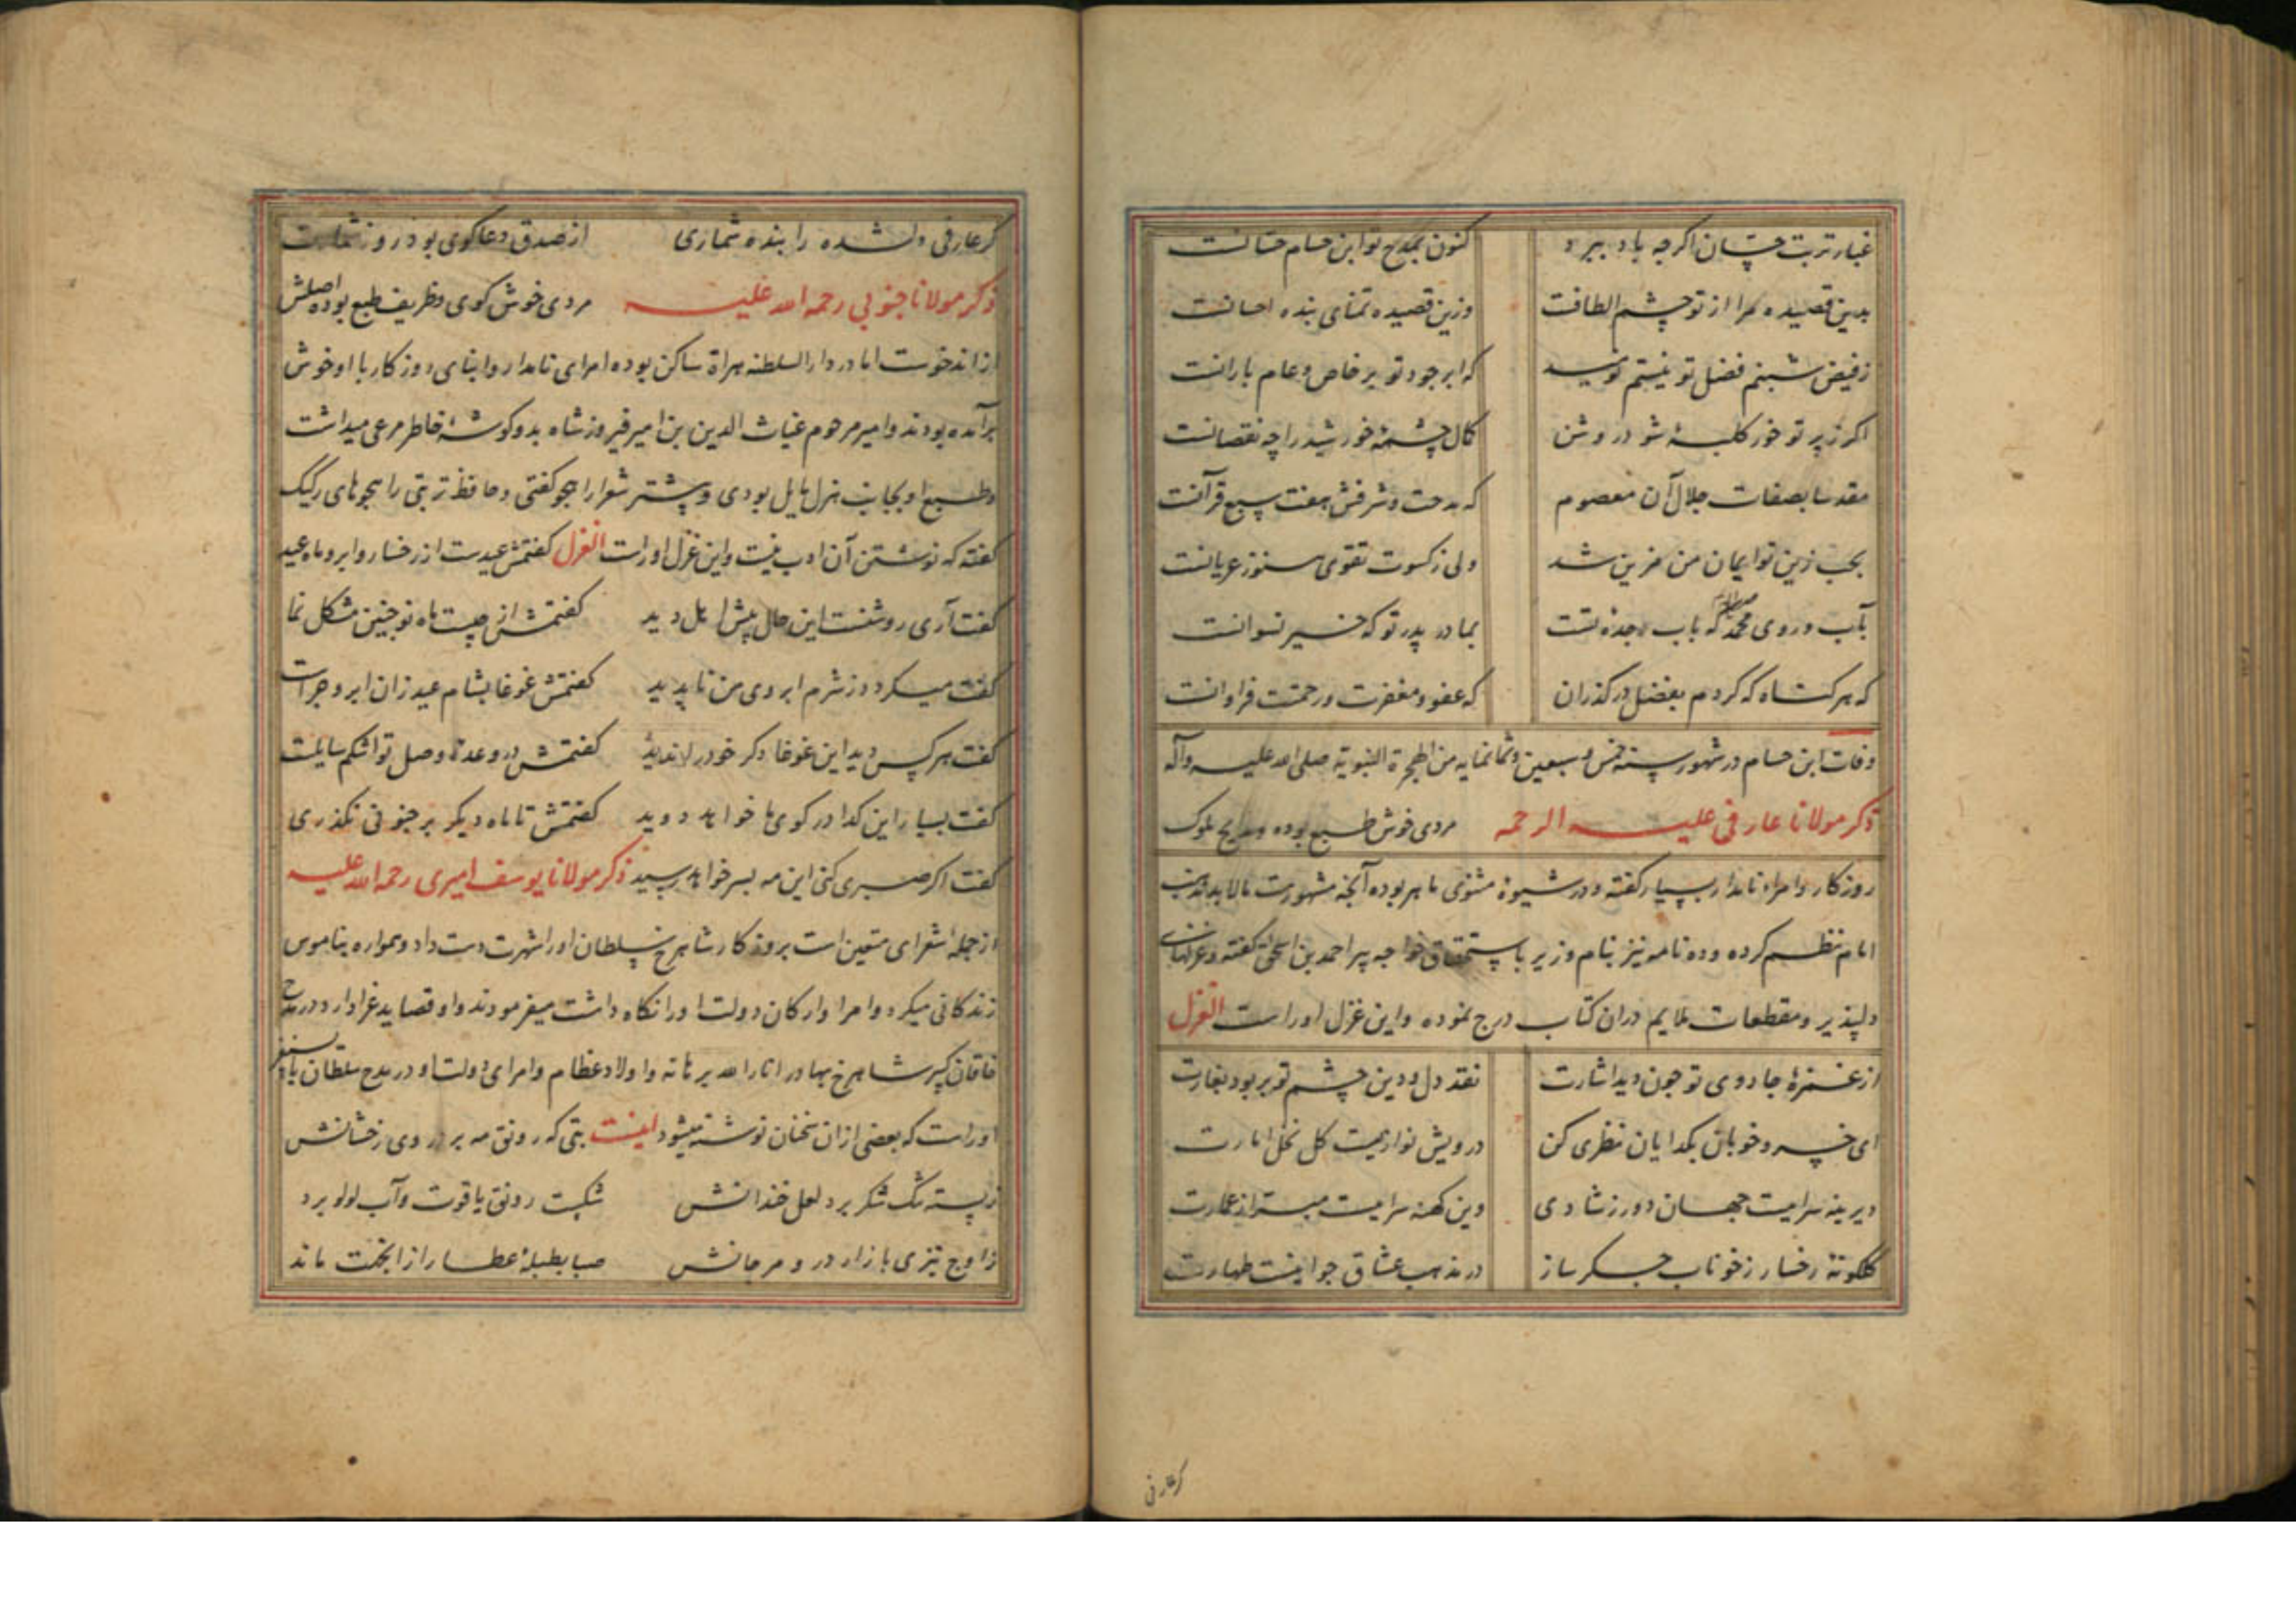 غبار تربت حسان اگرچه باد ببرد کنون بمدح تو ابن حسام حسانست
بدین قصیده مرا از تو چشم الطافت وزین قصیده تمنای بنده احسانست
ز فیض شبنم فضل تو نیستم نومید که ابر جود تو بر خاص و عام بارانست
اکر ز پرتو خور کلبهٔ شود روشن کمال چشمهٔ خورشید را چه نقصانست
مقدسا بصفات جلال آن معصوم که مدحت و شرفش هفت سبع قرآنست
بحب زین تو ایمان من مزین شد ولی ز کسوت تقوی هنوز عریانست
بآب روی محمد که باب جده تست بمادر پدر تو که خیر نسوانست
که هر کناه که کردم بفضل در کذران که عفو و مغفرت و رحمتت فراوانست
وفات ابن حسام در شهور سنه خمس و سبعین و ثمانمایه من الهجرة النبویة صلی الله علیه وآله
ذکر مولانا عارفی علیه الرحمه مردی خوش طبع بوده و مدایح ملوک
روزکار و امراء نامدار بسیار کفته و در شیوهٔ مثنوی ماهر بوده آنچه مشهورست مالابد مذهب
امام نظم کرده و ده نامه نیز بنام وزیر باستحقاق خواجه پیر احمد بن اسحق کفته و غزلهای
دلپذیر و مقطعات ملایم دران کتاب درج نموده و این غزل اوراست الغزل
از غمزهٔ جادوی تو جون دید اشارت نقد دل و دین چشم تو بربود بغارت
ای خسرو خوبان بکدایان نظری کن درویش نوازیست کل نخل امارت
دیرینه سراییست جهان دور ز شادی وین کهنه سراییست مبرا ز عمارت
کلکونهٔ رخسار ز خوناب جکر ساز در مذهب عشاق جو اینست طهارت
کر عارفی
کر عارفی دلشده را بنده شماری از صدق دعاکوی بود روز شمارت
ذکر مولانا جنونی رحمه الله علیه مردی خوش کوی و ظریف طبع بوده اصلش
از اندخوست اما در دارالسلطنه هراة ساکن بوده امرای نامدار و ابنای روزکار با او خوش
برآمده بودند و امیر مرحوم غیاث الدین بن امیر فیروزشاه بدو کوشهٔ خاطر مرعی میداشت
و طبع او بجانب هزل مایل بودی و پیشتر شعرا را هجو کفتی و حافظ تربتی را هجوهای رکیک
کفته که نوشتن آن ادب نیست و این غزل اوراست الغزل کفتمش عیدست از رخسار و ابرو ماه عید
کفت آری روشنست این حال پیش اهل دید کفتمش از چیست ماه نو جنین مشکل نما
کفت میکردد ز شرم ابروی من ناپدید کفتمش غوغا بشام عید زان ابرو جراست
کفت هر کس دید این غوغا دکر خود را ندید کفتمش در وعدهٔ وصل تو اشکم سایلست
کفت بسیار این کدا در کوی ما خواهد دوید کفتمش تا ماه دیکر بر جنونی نکذری
کفت اکر صبری کنی این مه بسر خواهد رسید ذکر مولانا یوسف امیری رحمه الله علیه
از جملهٔ شعرای متعین است بروزکار شاهرخ سلطان او را شهرت دست داد و همواره بناموس
زندکانی میکرد و امرا و ارکان دولت او را نکاه داشت میفرمودند و او قصاید غرا دارد در مدح
خاقان کبیر شاهرخ بهادر انار الله برهانه و اولاد عظام و امرای دولت او در مدح سلطان بایسنغر
اوراست که بعضی ازان سخنان نوشته میشود اینست بتی که رونق مه برد روی رخشانش
ز پسته تنک شکر برد لعل خندانش شکست رونق یاقوت و آب لولو برد
رواج تیزی بازار در و مرجانش صبا بطبلهٔ عطار از آن جهت ماند